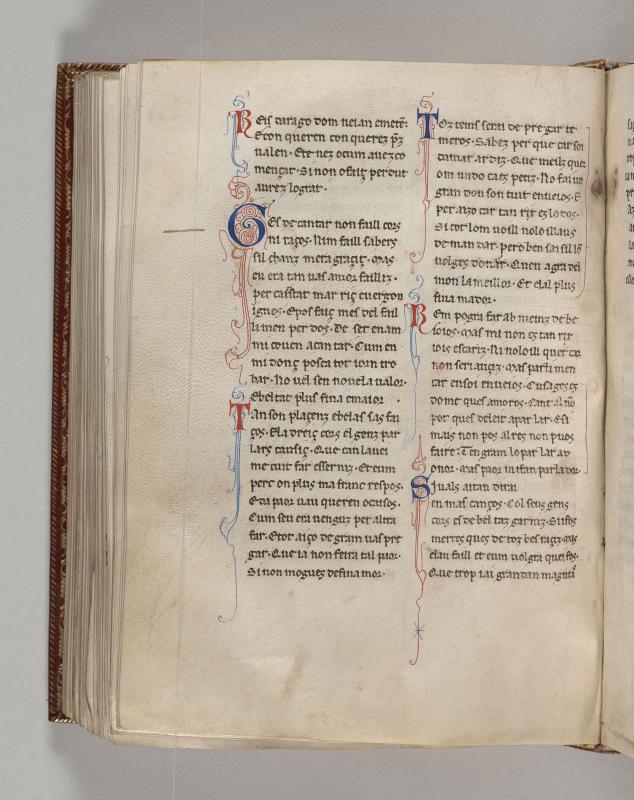 Reis darago dom nei an emetē;
Econ queren con querez pz
ualen. Ete nez ocum auez co
mençat. Si non ofaiz perdut
aurez lograt.
Ges de cantar non faill cors
ni raços. Nim faill sabers
sil chanz mera graçiz. Mas
eu era tan uas amor failliz.
per castat mar riç cuergon
ignos. Epos faiç mes del fail
limen per dos. De ser enam
mi couen a cantar. Cum en
mi donç posca tot ioun tro
bar. No uel sen nouela ualor.
Ebeltat plus fina emaior.
Tan son plaçenz ebelas sas fai
ços. Ela dreiç cors el genz par
lars causiç. Que can lauei
me cuit far esserniz. Et eum
perc on plus ma franc respos.
Eta paor uau queren ocusos.
Cum seu era uenguz per altra
far. Etot aiço de gram uas pre
gar. Que ia non feira tal paor.
Si non mogues de fina mor.
Toz tems serai de pregar te
meros. Sabez per que car son
damar ardiz. Que meilz quei
om uirdo caes petiz. No fai un
gran don son tuit enueios. E
per aizo car tan ric es lo dos.
Si tot lom uoill nolo
de man dar. pero ben sai sil li
uolges donar. Quen agra del
mon la meillor. Et elal plus
fina mador.
Bem pogra far ab menz de be
ioios. Mas mi non es tan ric
iois escariz. Ni nolo ill quer car
non seri auziz. Mas parti men
car en soi enueios. Cusages es
domt ques amoros. Cant al no
pot ques deleit apar lar. Esi
mais non pos al res non puos
faire. Ten gram lo par lar a
onor. Mas paor iutfan parlador.
Siuals aitan dirai
en mas canços. Col seus gens
cors es de bel taz garniz. Si fos
merces ques de toz bes raiz. mais
elan faill et eum uolgra que i fos.
Que trop iai gran dan magna